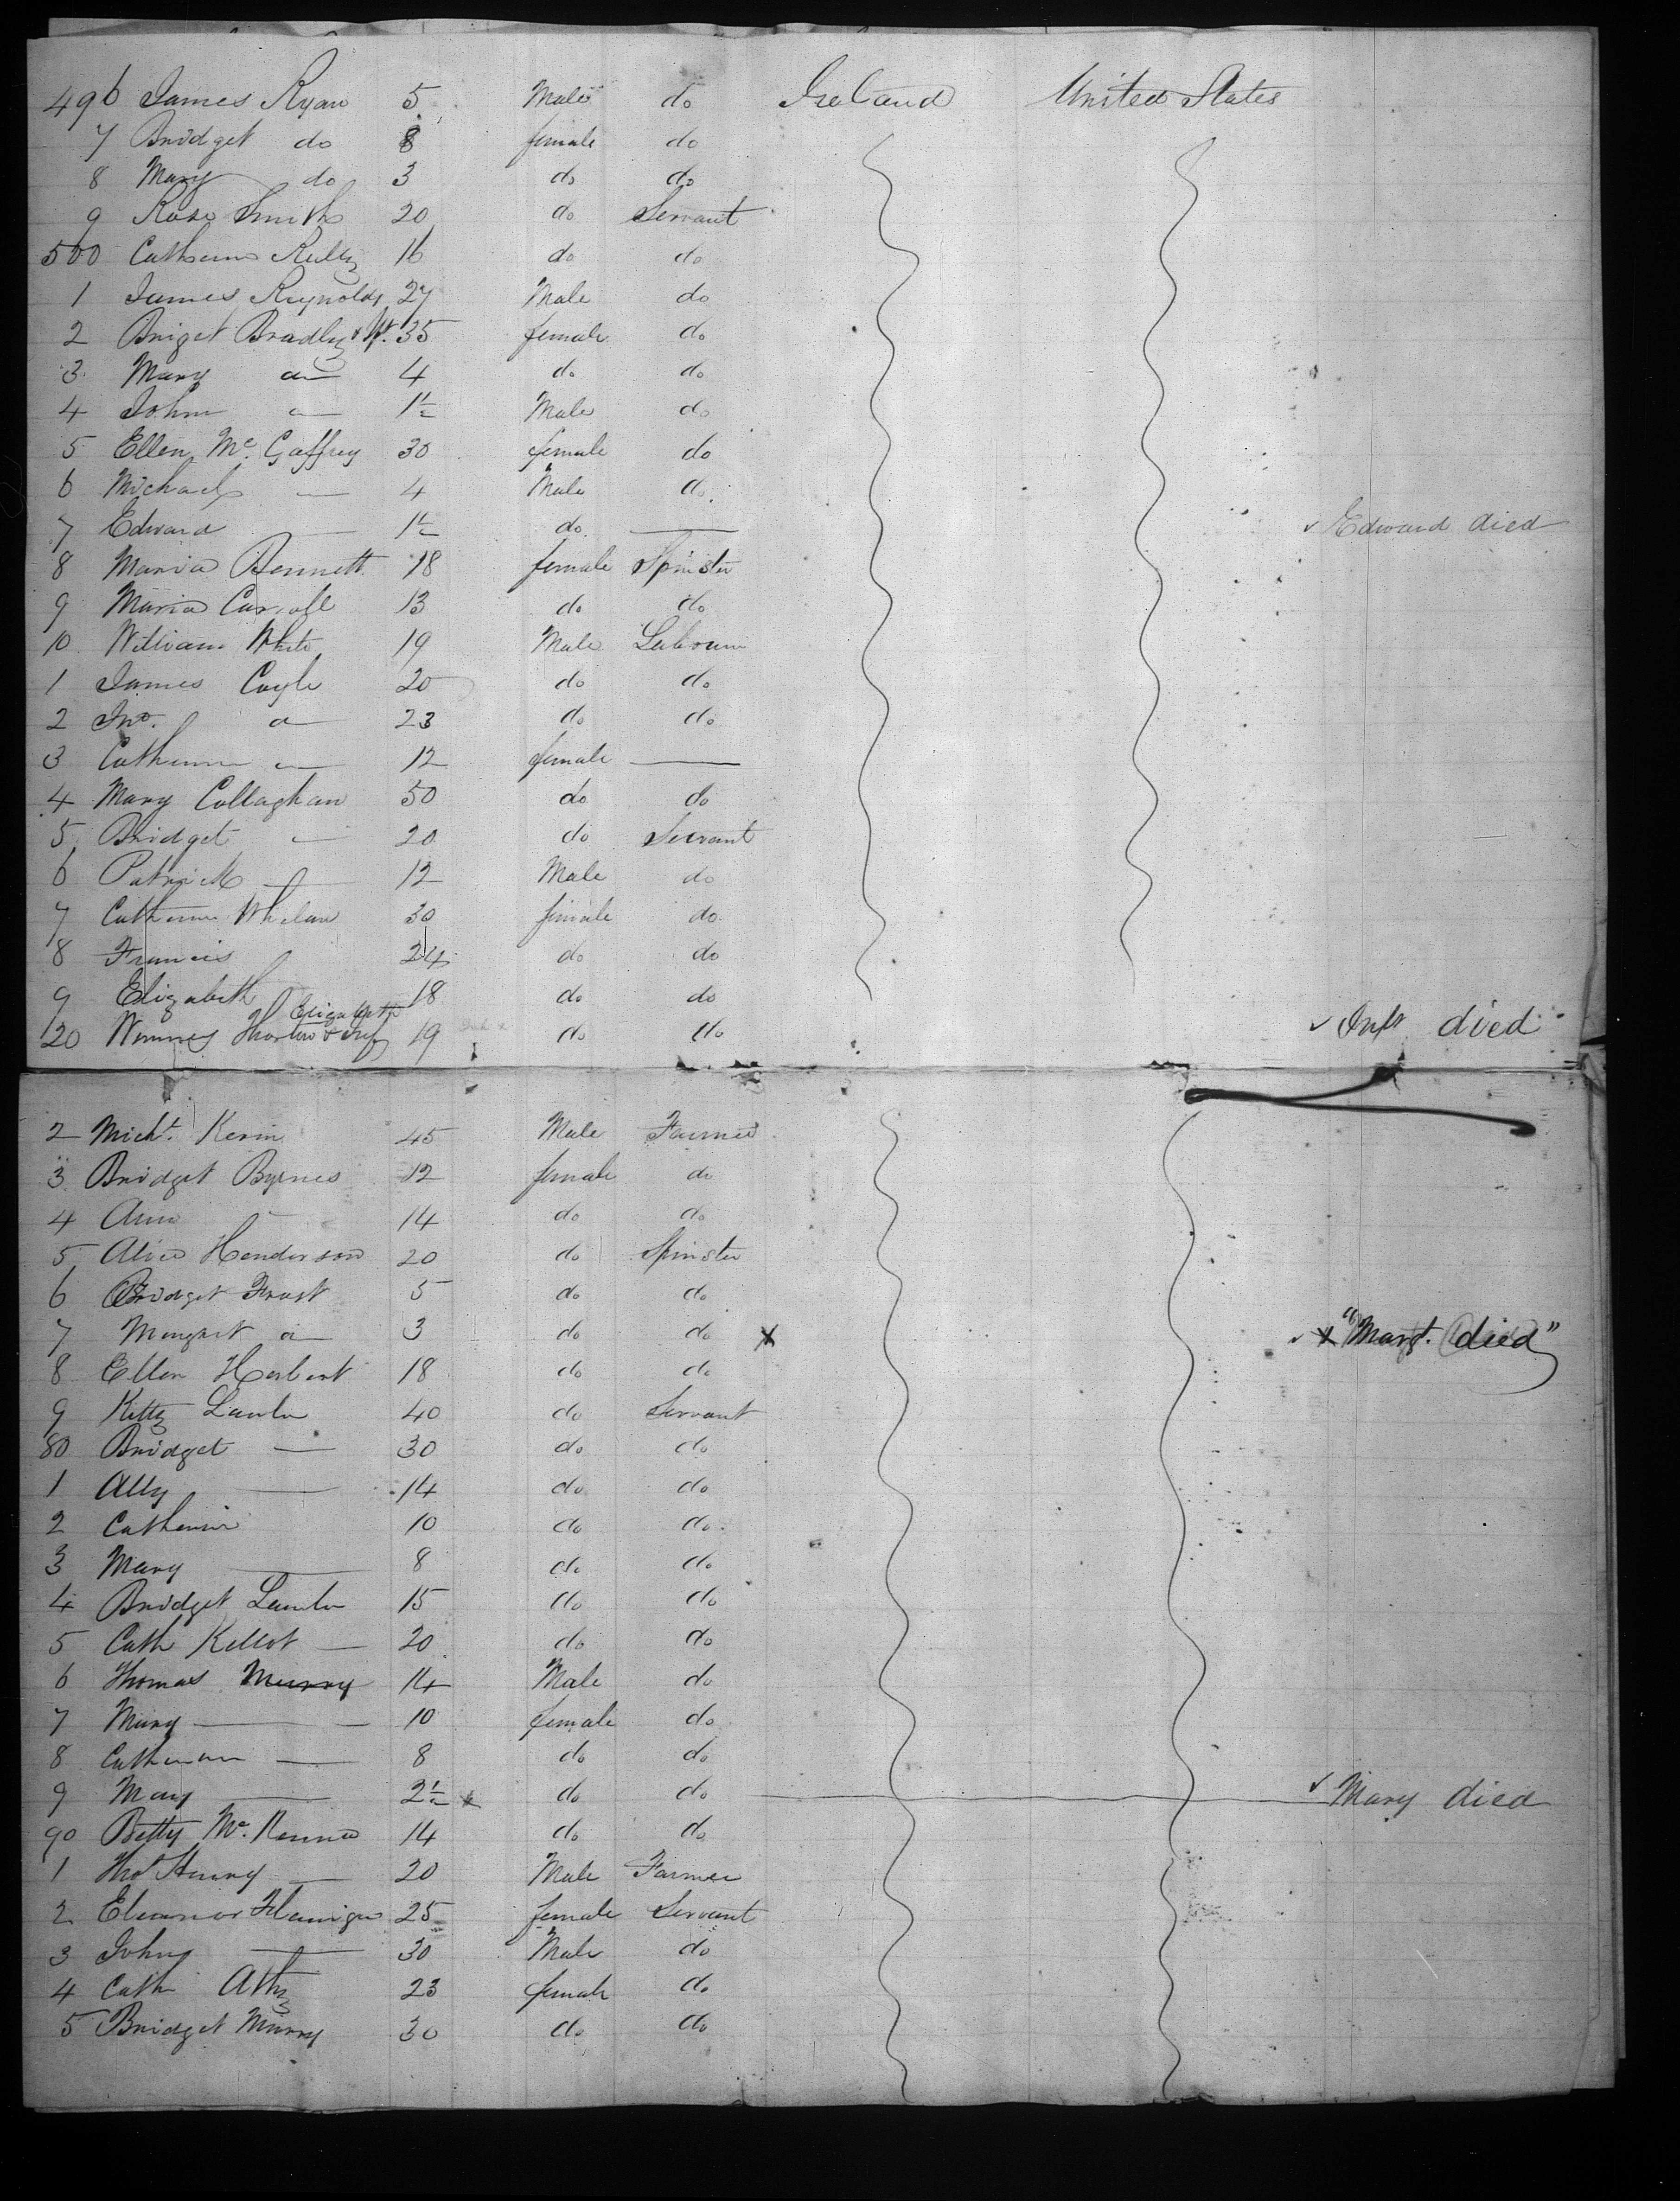 496 James Ryan 5 Male do Ireland United States
7 Bridget do 8 female do
8 Mary do 3 do do
9 Rose Smith 20 do Servant
500 Catherine Reilly 16 do do
1 James Reynolds 27 Male do
2 Briget Bradly & 35 female do
3 Mary do 4 do do
4 John 1½ Male do
5 Ellen Mc. Gaffrey 30 female do
6 Michael — 4 Male do
7 Edward — 1½ do — ✓ Edward died
8 Maria Bennett 18 female Spinster
9 Maria Carroll 13 do do
10 William White 19 Male Labourer
1 James Coyle 20 do do
2 Jno. do 23 do do
3 Catherine — 12 female —
4 Mary Callaghan 50 do do
5 Bridget — 20 do Servant
6 Patrick — 12 Male do
7 Catherine Whelan 30 female do
8 Francis 24 do do
9 Elizabeth 18 do do
Elizabeth
20 & Inf 19 do do ✓ Inft died
2 Michl. Kerin 45 Male Farmer
3 Bridget Byrnes 12 female do
4 Ann — 14 do do
5 Alice Henderson 20 do Spinster
6 Bridget Frost 5 do do
7 Margaret do 3 do do x ✓ x "Margt. died"
8 Ellen Herbert 18 do do
9 Kitty Lawler 40 do Servant
80 Bridget — 30 do do
1 Ally — 14 do do
2 Catherine 10 do do
3 Mary — 8 do do
4 Bridget Lawler 15 do do
5 Cath Kellot — 20 do do
6 Thomas Murry 14 Male do
7 Mary — 10 female do
8 Catherine — 8 do do
9 Mary — 2½ x do do ✓ Mary died
90 Betty Mc. Kenna 14 do do
1 Thos Henry — 20 Male Farmer
2 Eleanor 25 female Servant
3 John — 30 Male do
4 Cath 23 female do
5 Bridget Murry 30 do do